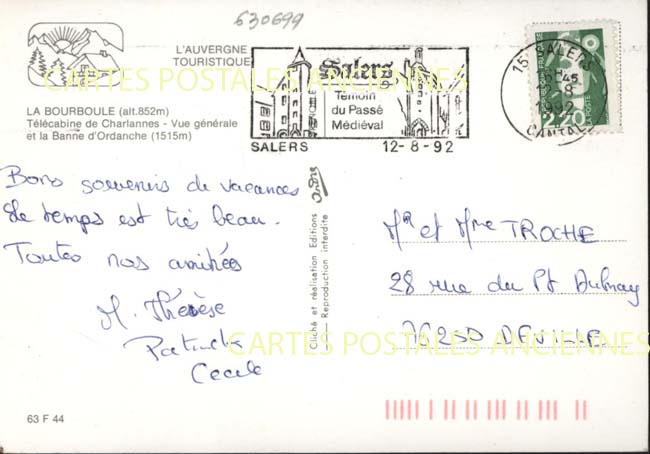 630699
L'AUVERGNE
TOURISTIQUE
LA BOURBOULE (alt.852m)
Télécabine de Charlannes - Vue générale
et la Banne d'Ordanche (1515m)
Salers
Témoin
du Passé
Médiéval
SALERS 12-8-92
15 SALERS
12-8
1992
CANTAL
2,20
LA POSTE
Bons souvenirs de vacances
Le temps est très beau.
Toutes nos amitiés
M. Thérèse
Patrick
Cecile
Cliché et réalisation Editions
Reproduction interdite
Mr et Mme TROCHE
28 rue du Pt Aulnay
76250 DEVILLE
CARTES POSTALES ANCIENNES
CARTES POSTALES ANCIENNES
63 F 44